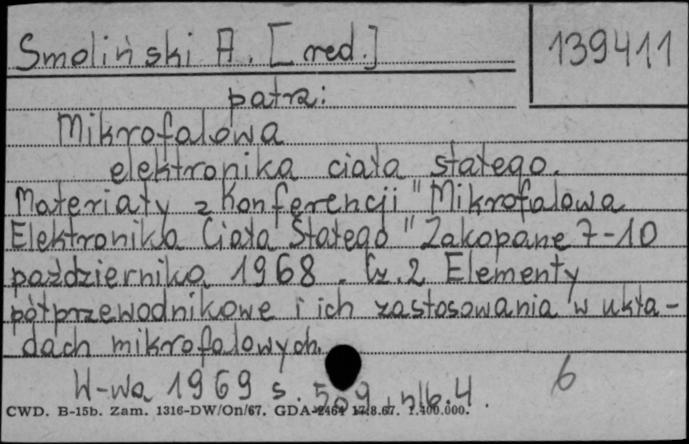 Smoliński A. [red.]
139411
patrz:
Mikrofalowa
elektronika ciała stałego.
Materiały z Konferencji "Mikrofalowa
Elektronika Ciała Stałego" Zakopane 7-10
października 1968. Cz.2 Elementy
półprzewodnikowe i ich zastosowania w ukła-
dach mikrofalowych.
W-wa 1969 s. 509,
6
CWD. B-15b. Zam. 1316-DW/On/67. GDA-2464 17.8.67. 1.400.000.